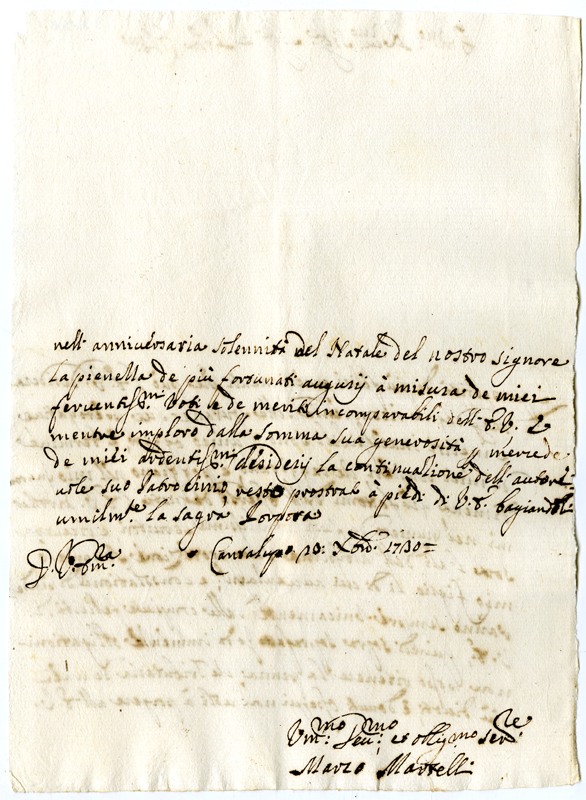 nell' anniversaria solennità del Natale del nostro signore
la pienella de più fortunati augurij à misura de miei
feruentissmi Voti le de meriti incomparabili dell' E. V. E
mentre imploro dalla somma sua generosità mercede
de miei ardentissmi desiderij la continuatione dell' autori
uole suo Patrocinio resto prostrat à piedi di V. E. bagiandole
umilmte la sagra Porpora
D. V. Emza Cantalupo 10: Xbre 1730=
Vmmo Deumo et obligmo serre
Marzo Martelli